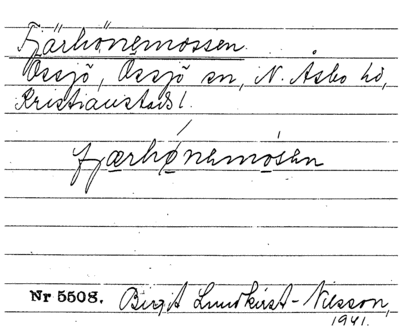 Fjärhönemossen.
Össjö, Össjö sn, N. Åsbo hd,
Kristianstads l.
fjærhønemósen
Nr 5508. Birgit Lundkvist-Nilsson,
1941.